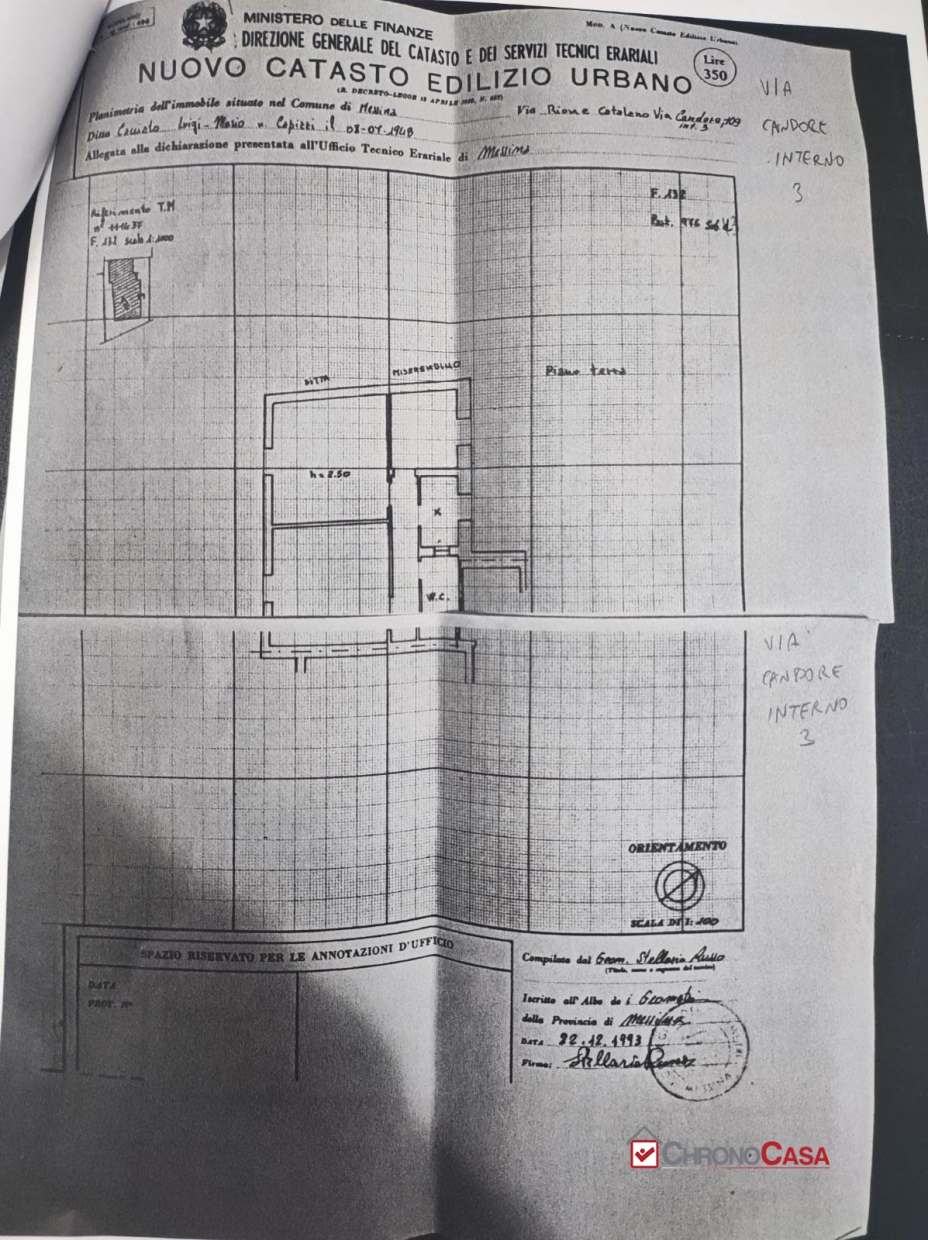 MINISTERO DELLE FINANZE
Mod. A (Nuovo Catasto Edilizio Urbano)
DIREZIONE GENERALE DEL CATASTO E DEI SERVIZI TECNICI ERARIALI
NUOVO CATASTO EDILIZIO URBANO
Lire
350
Planimetria dell'immobile situato nel Comune di Messina
Via Rione Cataleno Via Candore, 109
int. 3
Ditta Luigi-Mario n. Capizzi il
Allegata alla dichiarazione presentata all'Ufficio Tecnico Erariale di Messina
VIA
CANDORE
INTERNO
3
Riferimento T.M
F. 132
DITTA
MISERENDINO
Piano terra
h = 2.50
K
W.C.
VIA
CANDORE
INTERNO
3
ORIENTAMENTO
SCALA DI 1: 100
SPAZIO RISERVATO PER LE ANNOTAZIONI D'UFFICIO
DATA
PROT. N°
Compilata dal Geom. Stellario Russo
(Titolo, nome e cognome del tecnico)
Iscritto all'Albo de i Geometri
della Provincia di Messina
DATA 22.12.1993
Firma: Stellario Russo
MESSINA
CHRONOCASA